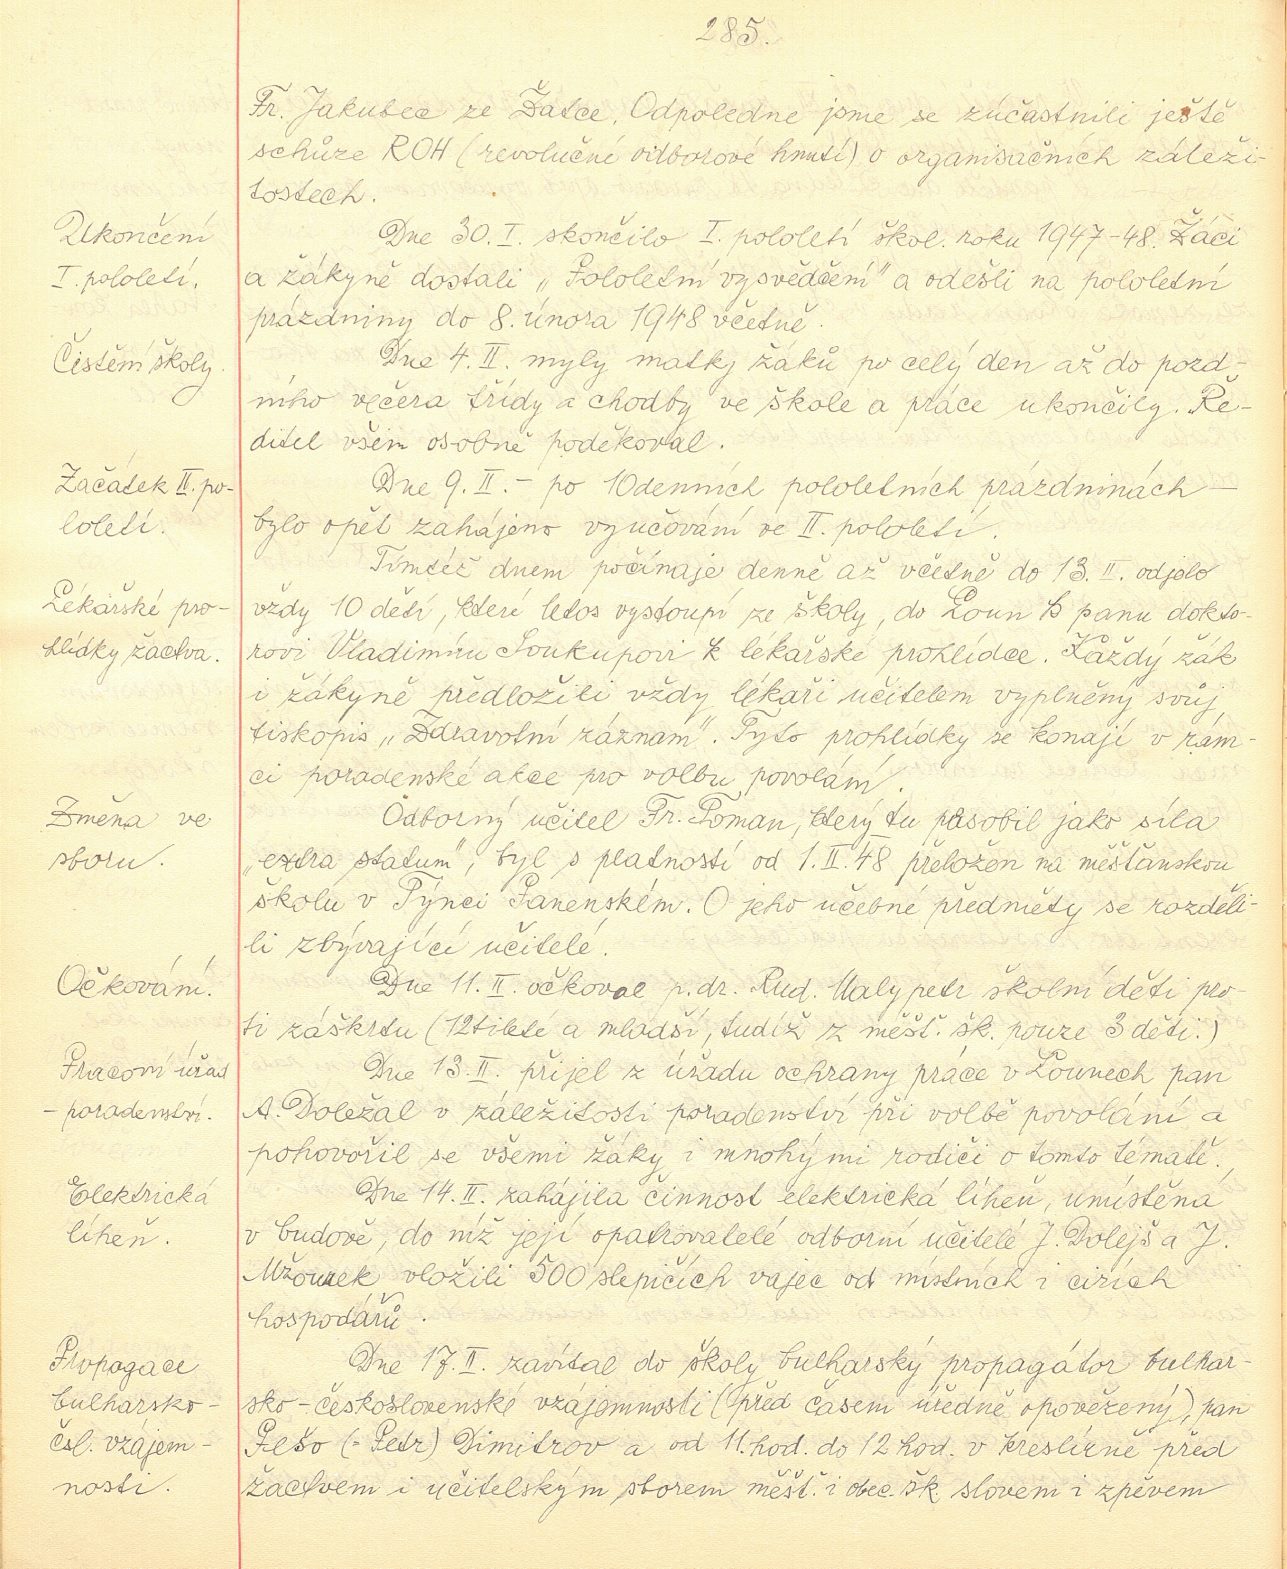 285.
Fr. Jakubec ze Žatce. Odpoledne jsme se zúčastnili ještě
schůze ROH (revoluční odborové hnutí) o organisačních záleži-
tostech.
Ukončení
I. pololetí.
Dne 30. I. skončilo I. pololetí škol. roku 1947-48. Žáci
a žákyně dostali „Pololetní vysvědčení" a odešli na pololetní
prázdniny do 8. února 1948 včetně.
Čistění školy.
Dne 4. II. myly matky žáků po celý den až do pozd-
ního večera třídy a chodby ve škole a práce ukončily. Ře-
ditel všem osobně poděkoval.
Začátek II. po-
loletí.
Dne 9. II. – po 10denních pololetních prázdninách –
bylo opět zahájeno vyučování ve II. pololetí.
Lékařské pro-
hlídky žactva.
Tímtéž dnem počínaje denně až včetně do 13. II. odjelo
vždy 10 dětí, které letos vystoupí ze školy, do Loun k panu dokto-
rovi Vladimíru Soukupovi k lékařské prohlídce. Každý žák
i žákyně předložili vždy lékaři učitelem vyplněný svůj
tiskopis „Zdravotní záznam". Tyto prohlídky se konají v rám-
ci poradenské akce pro volbu povolání.
Změna ve
sboru.
Odborný učitel Fr. Toman, který tu působil jako síla
„extra statum", byl s platností od 1. II. 48 přeložen na měšťanskou
školu v Týnci Panenském. O jeho učebné předměty se rozděli-
li zbývající učitelé.
Očkování.
Dne 11. II. očkoval p. dr. Rud. Malypetr školní děti pro-
ti záškrtu (12tileté a mladší, tudíž z měšť. šk. pouze 3 děti.)
Pracovní úřad
– poradenství.
Dne 13. II. přijel z úřadu ochrany práce v Lounech pan
A. Doležal v záležitosti poradenství při volbě povolání a
pohovořil se všemi žáky i mnohými rodiči o tomto tématě.
Elektrická
líheň.
Dne 14. II. zahájila činnost elektrická líheň, umístěná
v budově, do níž její opatrovatelé odborní učitelé J. Dolejš a J.
Mžourek vložili 500 slepičích vajec od místních i cizích
hospodářů.
Propagace
bulharsko-
čsl. vzájem-
nosti.
Dne 17. II. zavítal do školy bulharský propagátor bulhar-
sko-československé vzájemnosti (před časem úředně opověděný), pan
Pešo (= Petr) Dimitrov a od 11. hod. do 12 hod. v kreslírně před
žactvem i učitelským sborem měšť. i obec. šk slovem i zpěvem